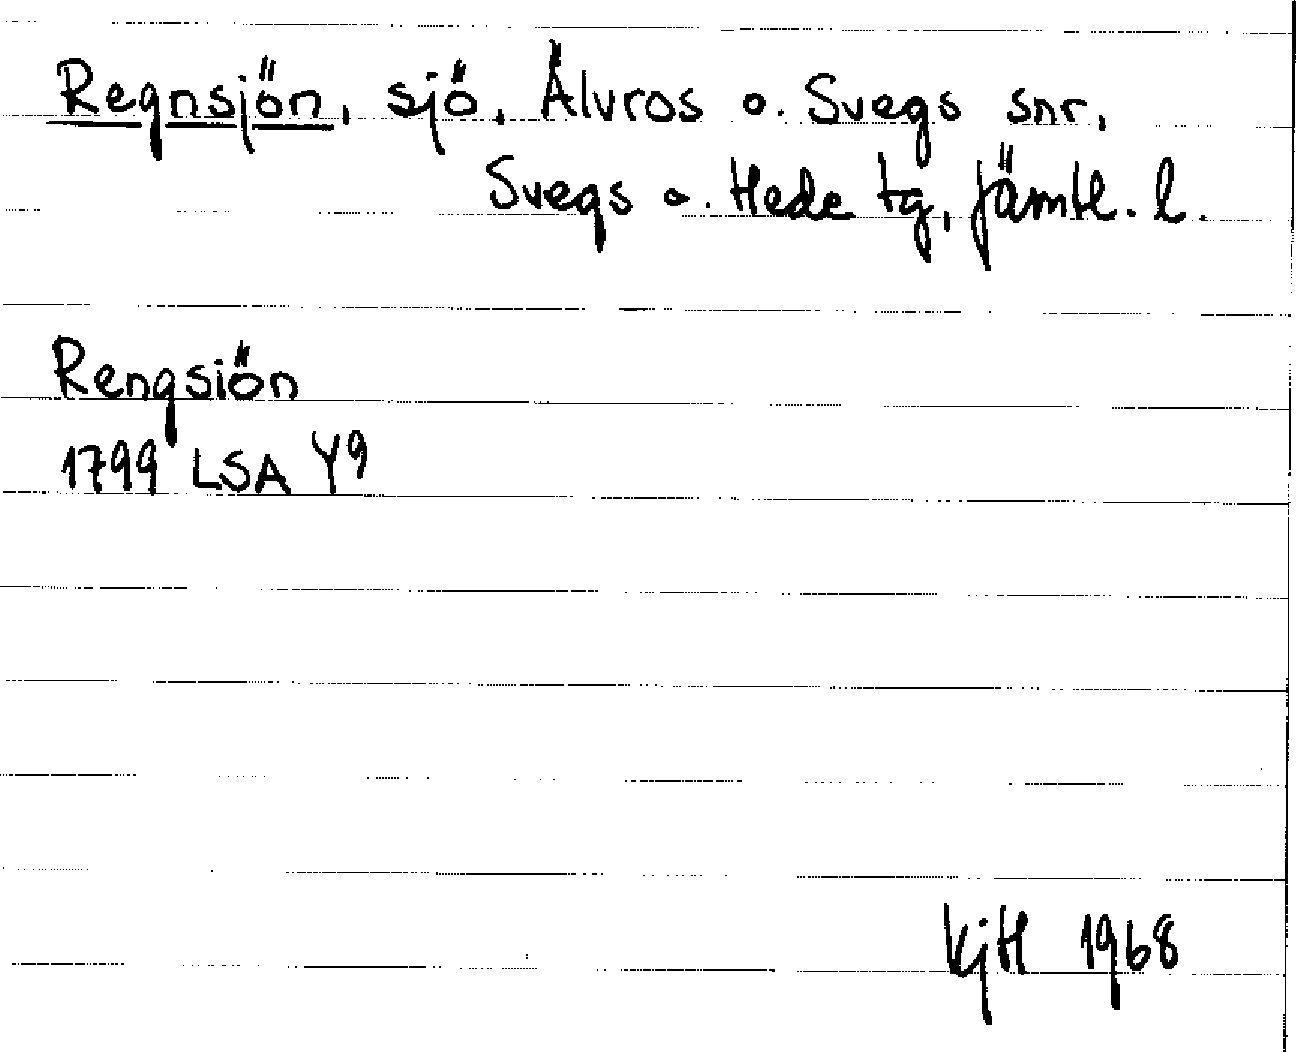 Regnsjön, sjö, Älvros o. Svegs snr,
Svegs o. Hede tg, Jämtl. l.
Rengsiön
1799 LSA Y9
KjH 1968